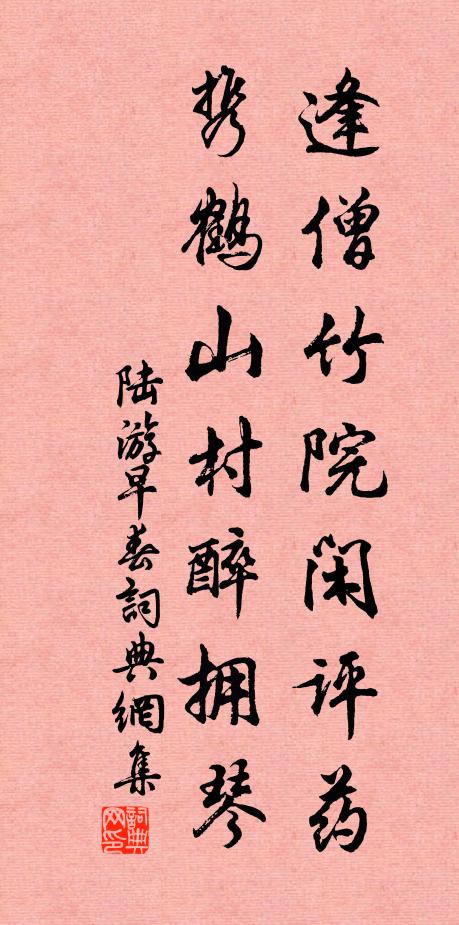 逢僧竹院闲评药
携鹤山村醉拥琴
陆游早春詞典網集
詞典网印